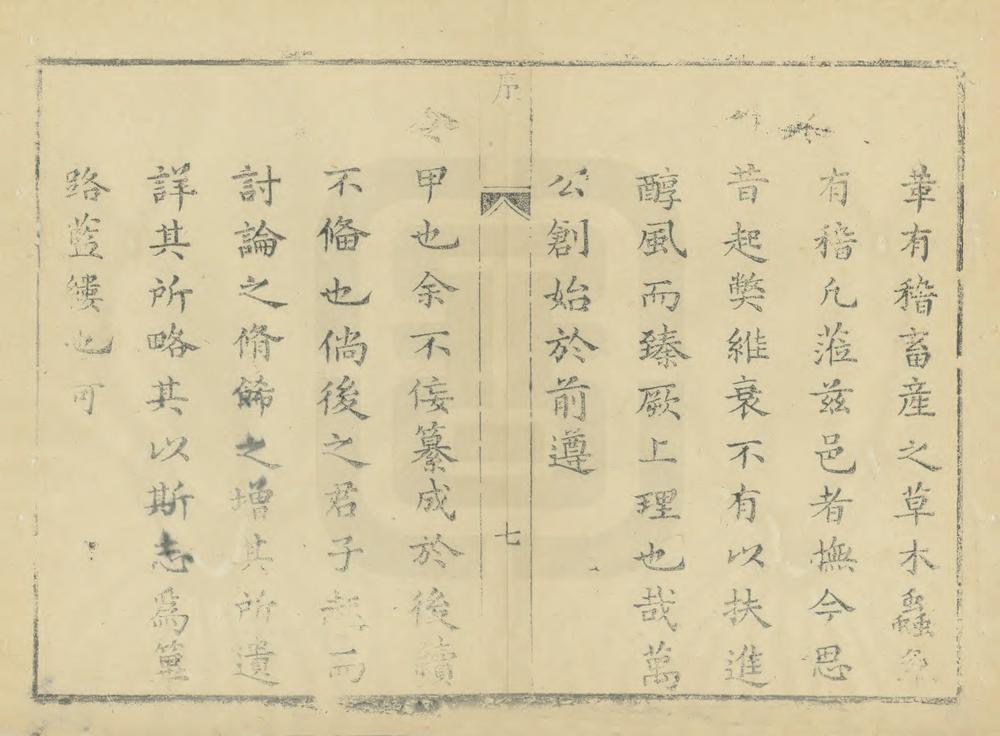 葦有稽畜產之草木蟲魚
有稽凡蒞茲邑者撫今思
昔起獘維衰不有以扶進
醇風而臻厥上理也哉萬
公創始於前遵
序
七
甲也余不佞纂成於後續
不俻也倘後之君子起而
討論之脩餙之增其所遺
詳其所略其以斯志爲篳
路藍縷也可